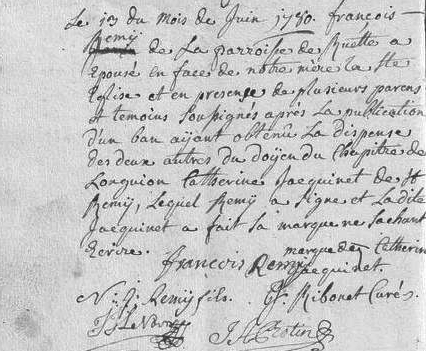 Le 13 du mois de Juin 1780. françois
Remÿ
de La parroise de Ruette a
Epousé en face de notre mère la Ste
Eglise et en presence de plusieurs parens
et temoins soussignés après La publication
d'un ban aÿant obtenû La dispense
des deux autres du doÿen du Chapitre de
Longuion Catherine Jacquinet de St
Remÿ, Lequel Remÿ a signe et La dite
Jacquinet a fait sa marque ne sachant
Ecrire.
marque de Catherine
françois Remÿ Jacquinet.
N: J: Remÿ fils. Ribonet Curé.